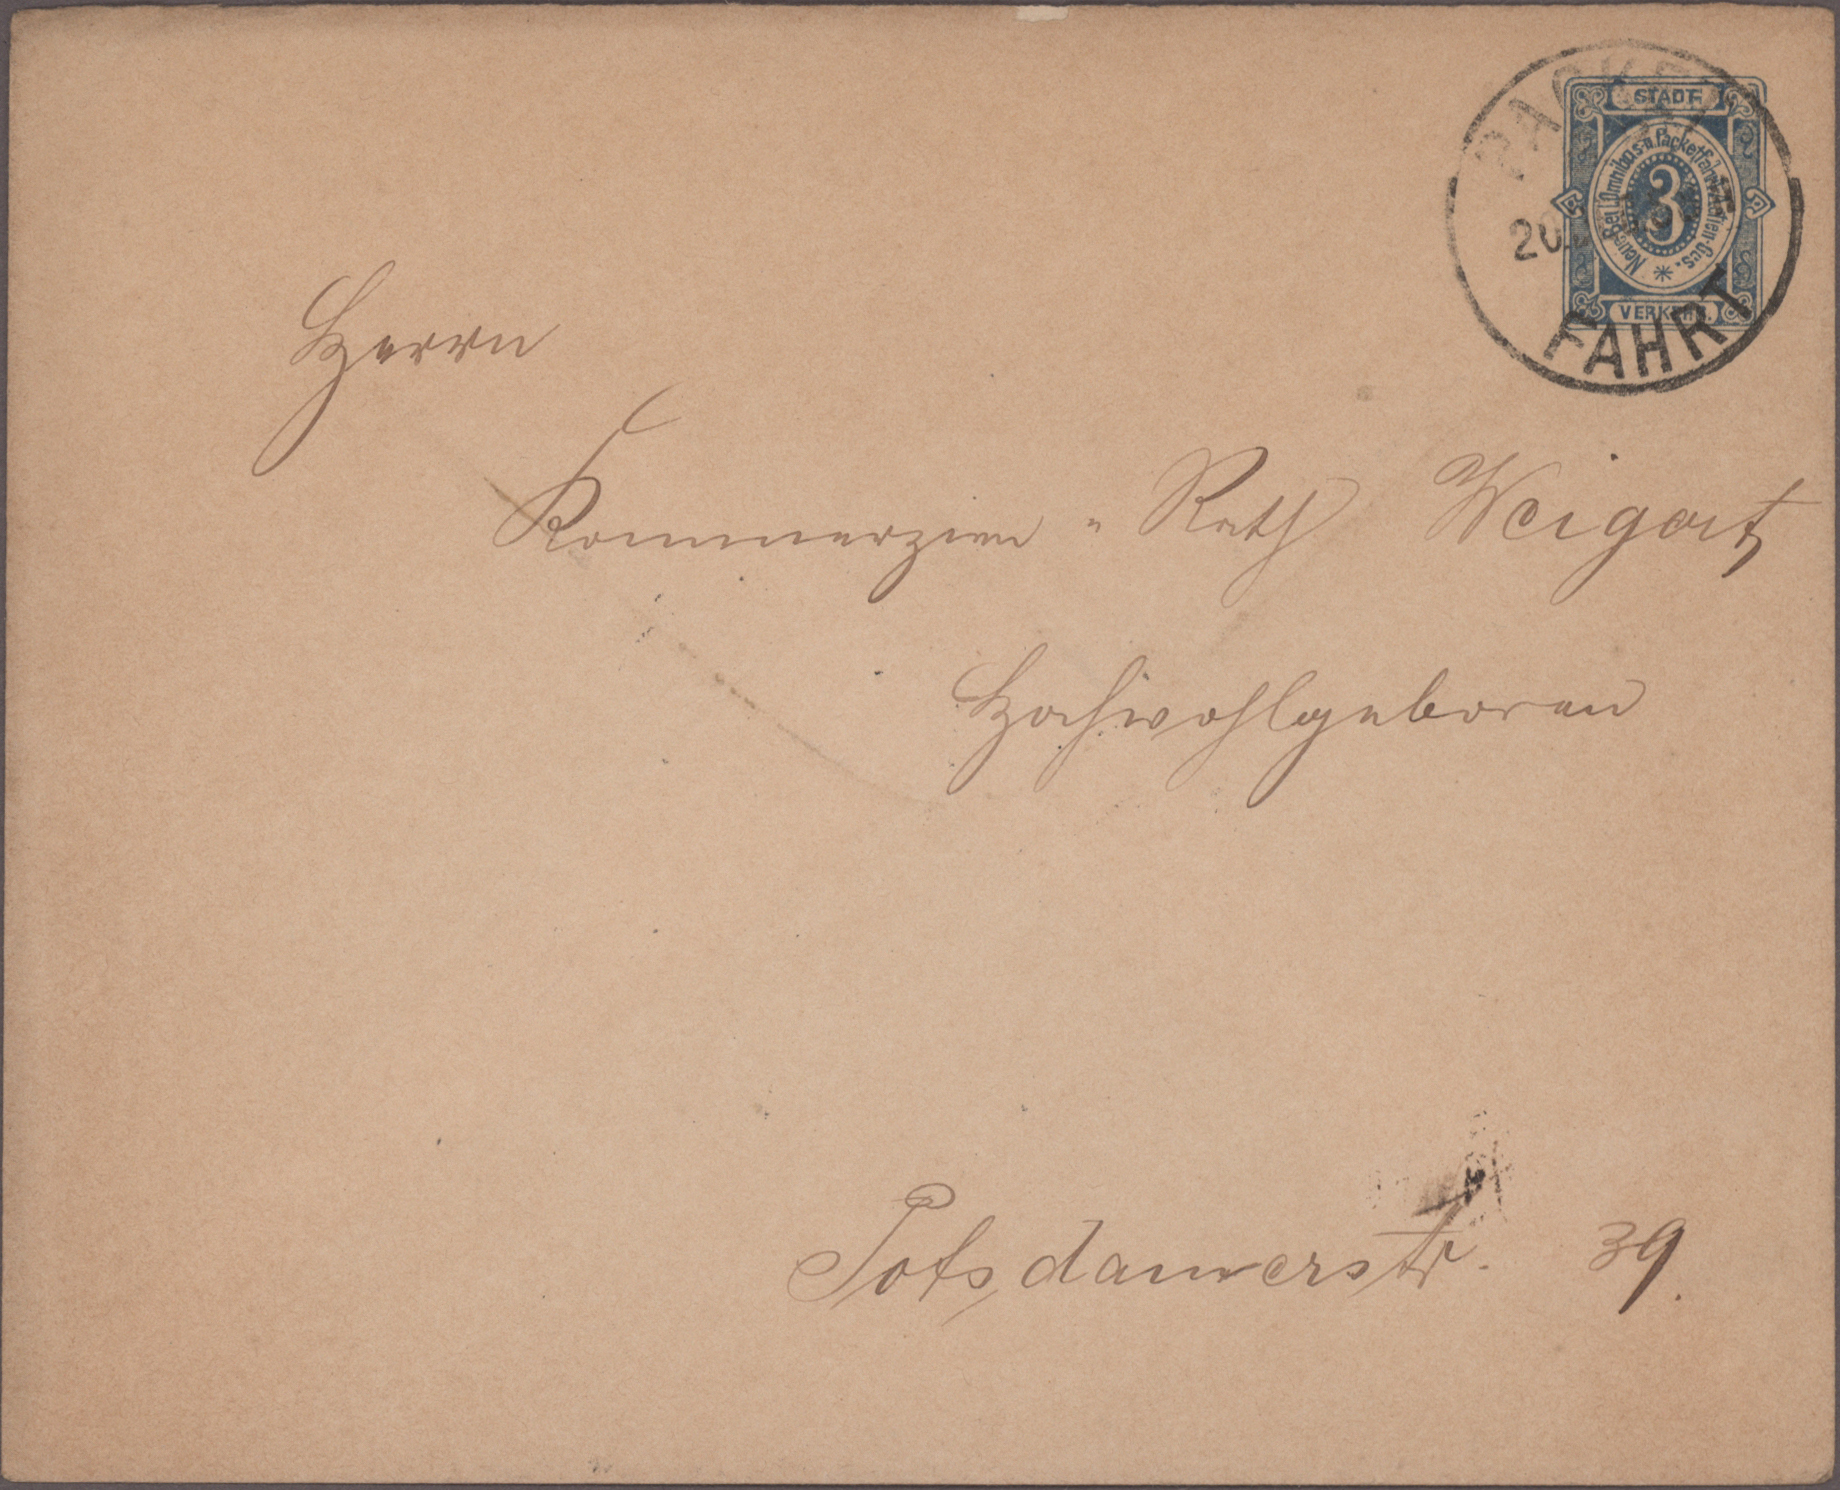 PACKET
FAHRT
STADT-
Neue Berl. Omnibus- u. Packetfahrt Actien-Ges.
3
VERKEHR.
Herrn
Kommerzien - Rath Weigert
Hochwohlgeboren
Potsdamerstr. 39.